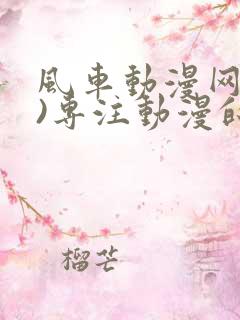 風车動漫网
)専注動漫的
榴芒